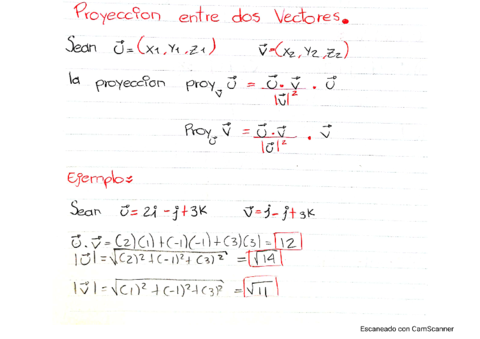 Proyeccion entre dos Vectores.
Sean U⃗=(X1,Y1,Z1) V⃗=(X2,Y2,Z2)
la proyeccion proyᵥ U⃗ = U⃗·V⃗/|U⃗|² · U⃗
Proyᵤ V⃗ = U⃗·V⃗/|U⃗|² · V⃗
Ejemplo:
Sean U⃗=2i-j+3K V⃗=j-j+3K
U⃗.V⃗=(2)(1)+(-1)(-1)+(3)(3)=12
|U⃗|=√(2)²+(-1)²+(3)² =√14
|V⃗|=√(1)²+(-1)²+(3)² =√11
Escaneado con CamScanner